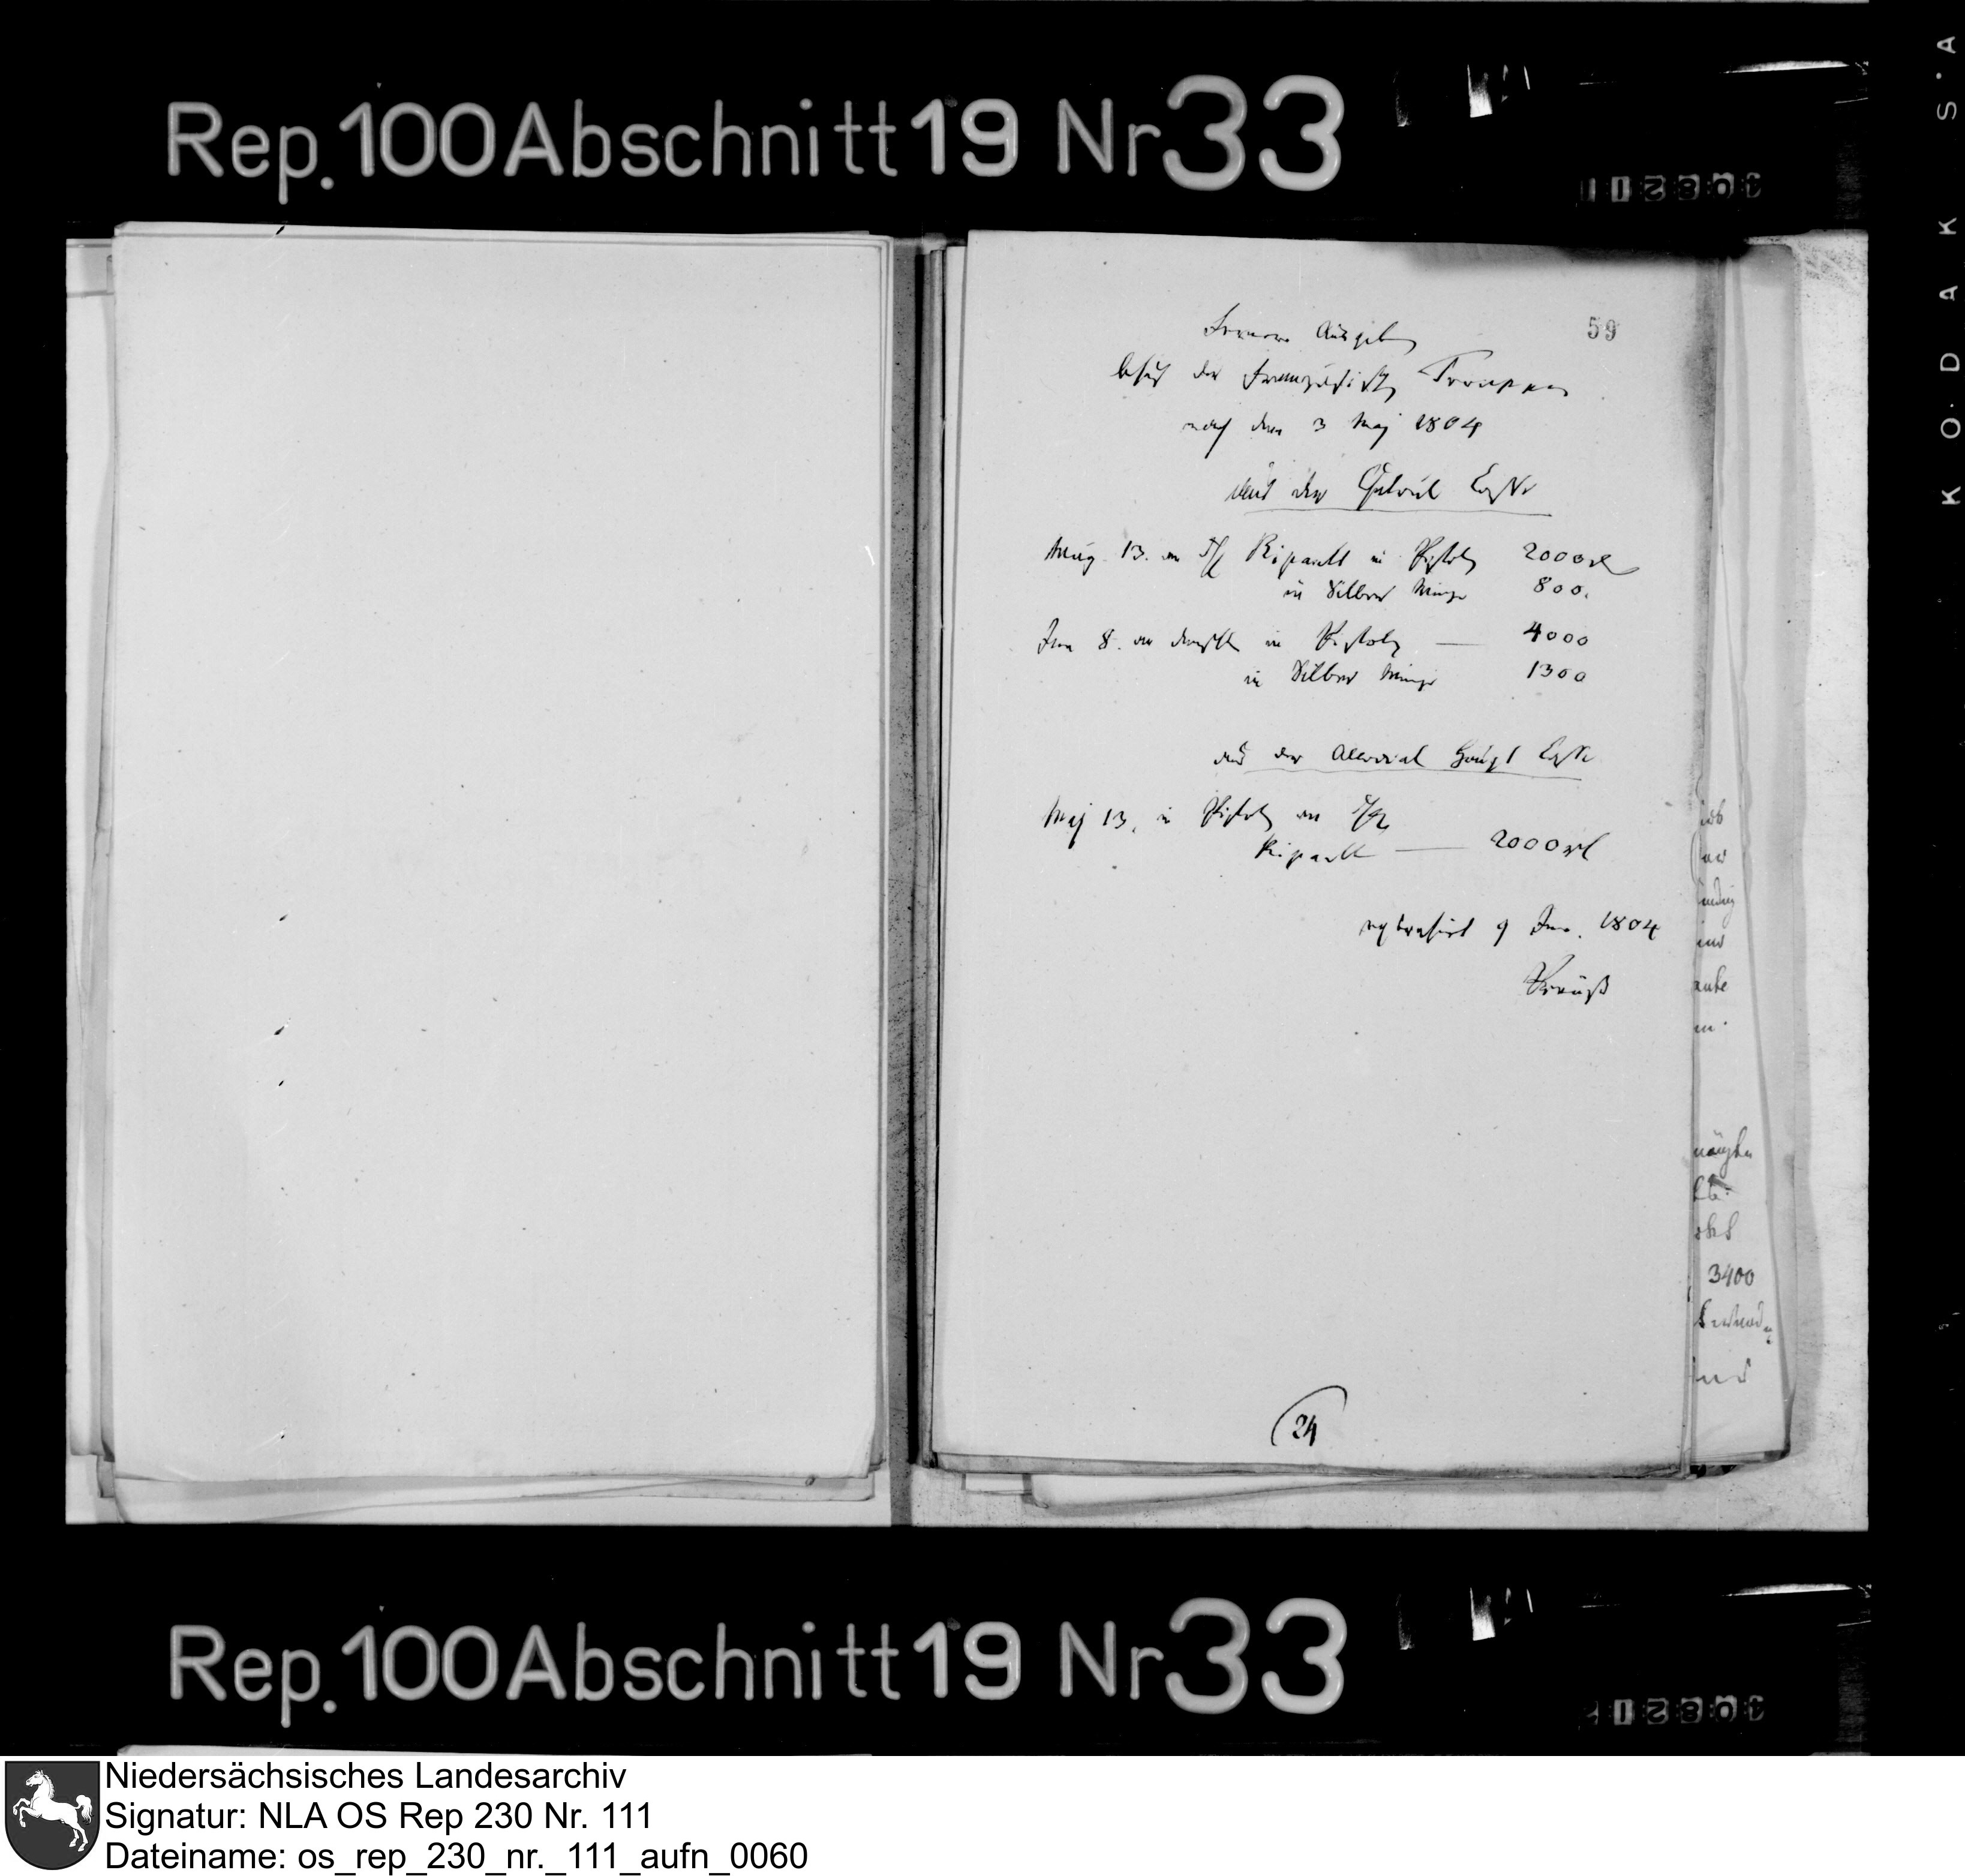 Rep. 100 Abschnitt 19 Nr 33
59
Fernere Ausgaben
behuf der Französischen Trouppen
nach dem 3 Maj 1804
aus der Casse
13. an Ripault in Pistolen 2000 rl
in Silber Münze 800.
Jun 8. an denselben in Pistolen — 4000
in Silber Münze 1300
aus der Haupt Casse
Maj 13, in Pistolen an
Ripault — 2000 rl
extrahirt 9 Jun. 1804
Struüß
24
3400
Rep. 100 Abschnitt 19 Nr 33
KODAK S.A
Niedersächsisches Landesarchiv
Signatur: NLA OS Rep 230 Nr. 111
Dateiname: os_rep_230_nr._111_aufn_0060